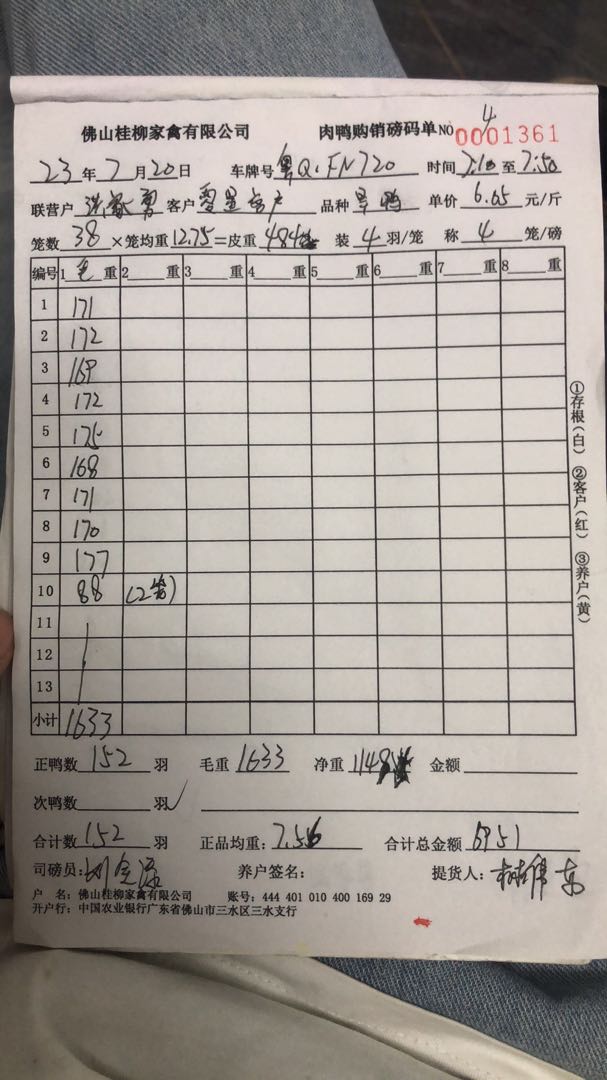 佛山桂柳家禽有限公司 肉鸭购销磅码单 NO 0001361
4
23年7月20日 车牌号 粤Q·FN720 时间 7:10 至 7:50
联营户 客户 品种 旱鸭 单价 6.05 元/斤
笼数 38 ×笼均重 12.75 =皮重 484 装 4 羽/笼 称 4 笼/磅
编号 1 毛 重 2 重 3 重 4 重 5 重 6 重 7 重 8 重
1 171
2 172
3 169
4 172
5 175
6 168
7 171
8 170
9 177
10 88 (2笼)
11
12
13
小计 1633
正鸭数 152 羽 毛重 1633 净重 1148 金额
次鸭数 羽
合计数 152 羽 正品均重: 7.56 合计总金额 6951
司磅员: 养户签名: 提货人:
户 名: 佛山桂柳家禽有限公司 账号: 444 401 010 400 169 29
开户行: 中国农业银行广东省佛山市三水区三水支行
①存根(白) ②客户(红) ③养户(黄)